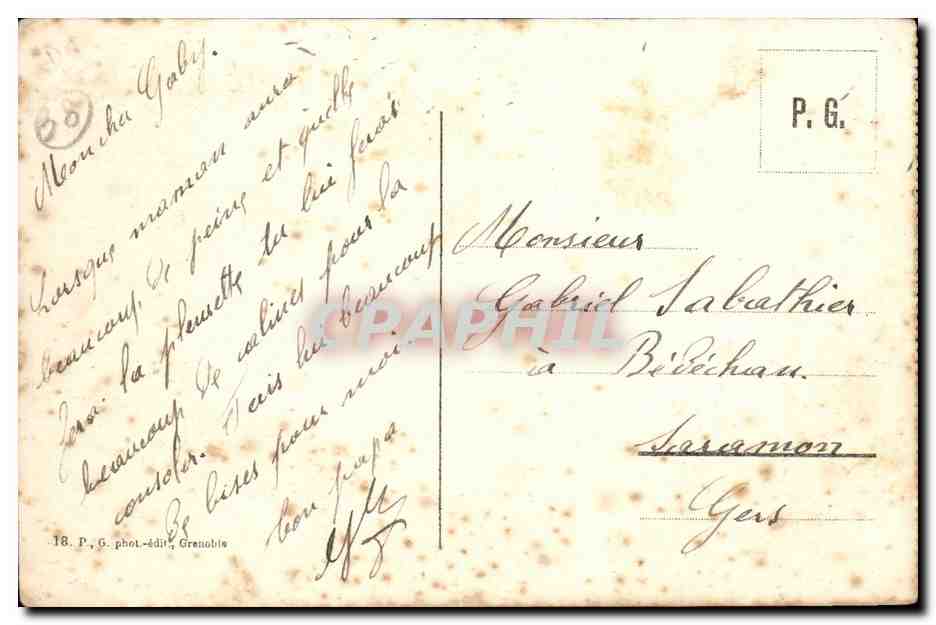 Mon cha Gaby.
Lorsque maman aura
beaucoup de peine et quelle
fera la pleurette tu lui feras
beaucoup de calines pour la
consoler. Fais lui beaucoup
De bises pour moi.
bon papa
88
P. G.
Monsieur
Gabriel Sabathier
à Bédéchan.
Saramon
Gers
18. P. G. phot.-édit., Grenoble
CPAPHIL